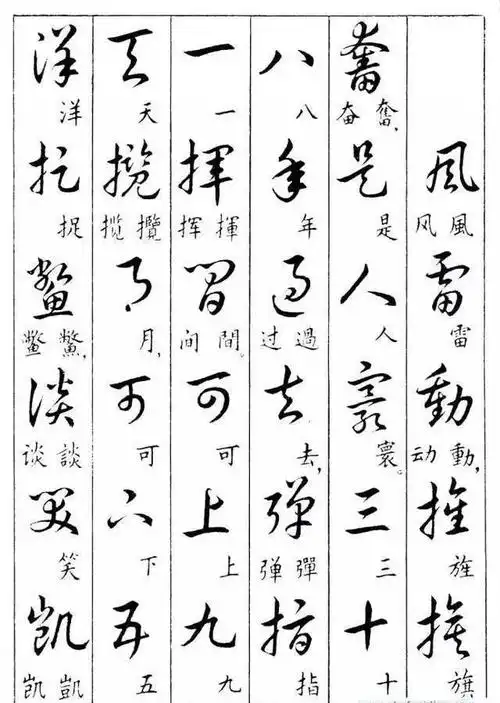 風雷動旌旗
風风 雷 動,动 旌 旗
奮是人寰三十
奮,奋 是 人 寰。 三 十
八年過去彈指
八 年 過过 去, 彈弹 指
一揮間可上九
一 揮挥 間。间 可 上 九
天攬月可下五
天 攬揽 月, 可 下 五
洋捉鱉談笑凱
洋 捉 鱉,鳖 談谈 笑 凱凯